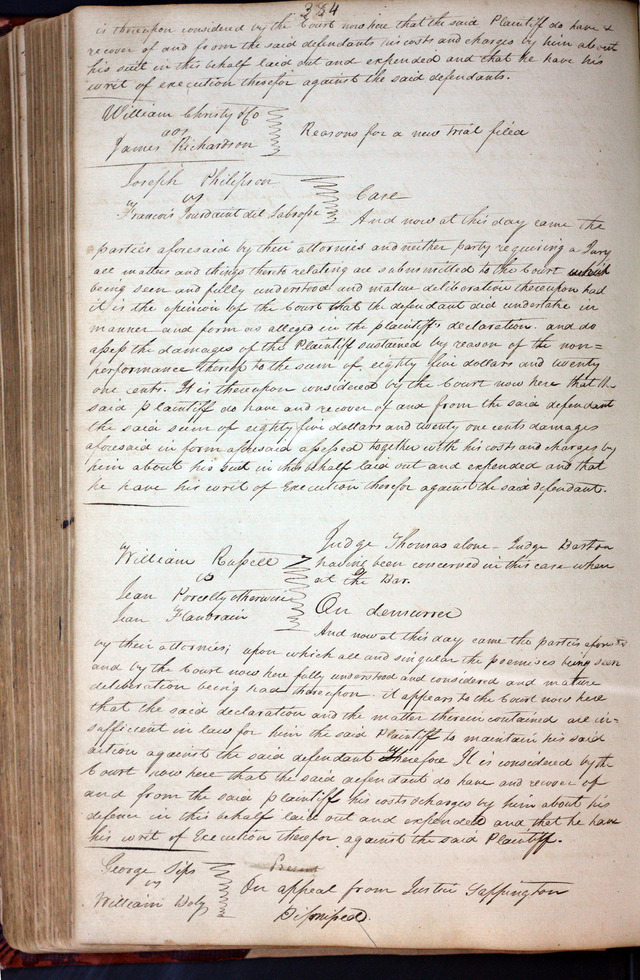 384
is thereupon considered by the Court now here that the said Plaintiff do have &
recover of and from the said defendants his costs and charges by him about
his suit in this behalf laid out and expended and that he have his
writ of execution therefor against the said defendants.
William Christy & Co
vs
James Richardson
Reasons for a new trial filed
Joseph Philipson
vs
Francois Jourdaint dit Labrosse
Case
And now at this day came the
parties aforesaid by their attornies and neither party requiring a Jury
all matters and things thereto relating are submitted to the Court which
being seen and fully understood and mature deliberation thereupon had
it is the opinion of the Court that the defendant did undertake in
manner and form as alleged in the plaintiff's declaration. and do
assess the damages of the Plaintiff sustained by reason of the non=
performance thereof to the sum of eighty five dollars and twenty
one cents. It is thereupon considered by the Court now here that the
said plaintiff do have and recover of and from the said defendant
the said sum of eighty five dollars and twenty one cents damages
aforesaid in form aforesaid assessed together with his costs and charges by
him about his suit in this behalf laid out and expended and that
he have his writ of Execution therefor against the said defendant.
William Russell
vs
Jean Porcelly otherwise
Jean Flaudrain
Judge Thomas alone - Judge Barton
having been concerned in this case when
at the Bar.
On demurrer
And now at this day came the parties afores'd
by their attornies; upon which all and singular the premises being seen
and by the Court now here fully understood and considered and mature
deliberation being had thereupon. it appears to the Court now here
that the said declaration and the matter therein contained are in=
sufficient in law for him the said Plaintiff to maintain his said
action against the said defendant Therefore It is considered by the
Court now here that the said defendant do have and recover of
and from the said plaintiff his costs & charges by him about his
defence in this behalf laid out and expended and that he have
his writ of Execution therefor against the said Plaintiff.
George Sips
vs
William Doty
Present
On appeal from Justice Sappington
Dismissed